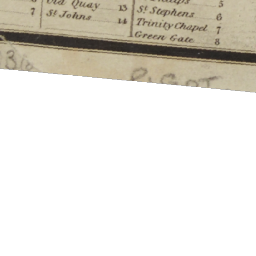 Old Quay 13
7 St Johns 14
5
St Stephens 6
Trinity Chapel 7
Green Gate 8